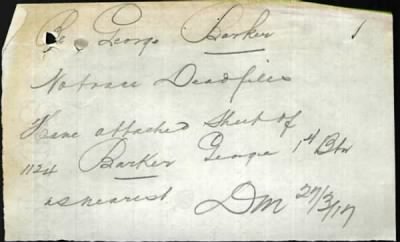 Re George Barker 1
No trace Deadfiles
Have attached Sheet of
1124 Barker George 1st Btn
as nearest DM 27/3/17